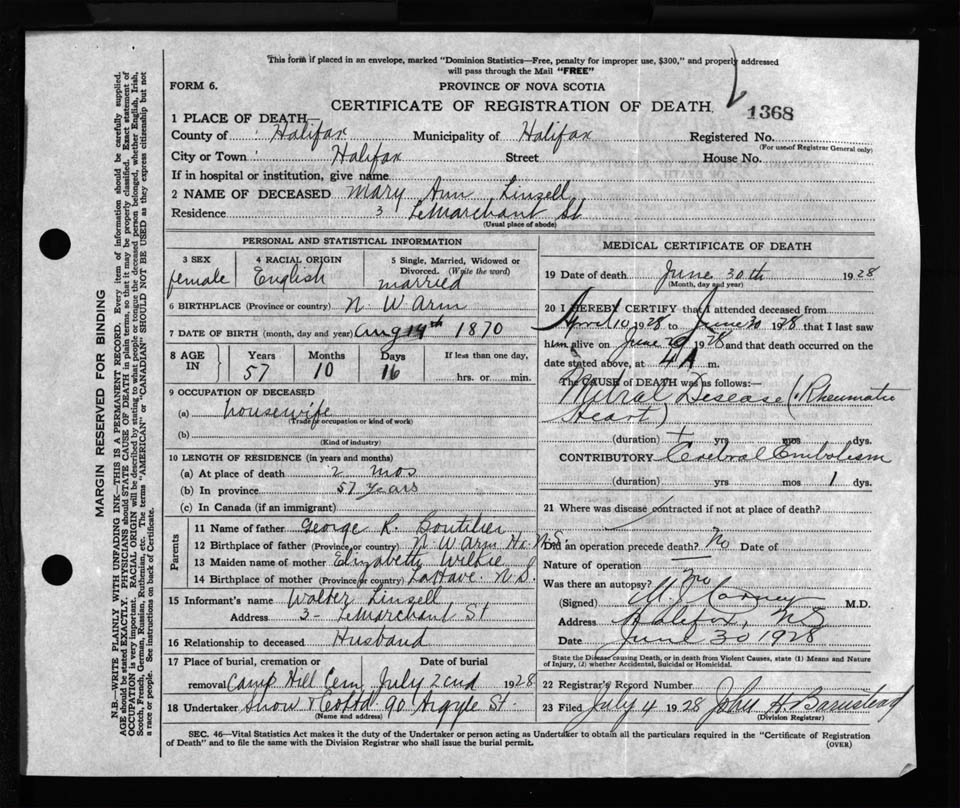 This form if placed in an envelope, marked "Dominion Statistics—Free, penalty for improper use, $300," and properly addressed
will pass through the Mail "FREE"
FORM 6.
PROVINCE OF NOVA SCOTIA
CERTIFICATE OF REGISTRATION OF DEATH.
1368
1 PLACE OF DEATH—
County of Halifax Municipality of Halifax Registered No.
(For use of Registrar General only)
City or Town Halifax Street House No.
If in hospital or institution, give name
2 NAME OF DECEASED Mary Ann Linzell
Residence 3 LeMarchant St
(Usual place of abode)
PERSONAL AND STATISTICAL INFORMATION
3 SEX female
4 RACIAL ORIGIN English
5 Single, Married, Widowed or Divorced. (Write the word) married
6 BIRTHPLACE (Province or country) N. W Arm
7 DATE OF BIRTH (month, day and year) Aug 14th 1870
8 AGE IN Years Months Days If less than one day,
57 10 16 hrs. or min.
9 OCCUPATION OF DECEASED
(a) housewife
(Trade or occupation or kind of work)
(b)
(Kind of industry)
10 LENGTH OF RESIDENCE (in years and months)
(a) At place of death 2 mos
(b) In province 57 years
(c) In Canada (if an immigrant)
Parents
11 Name of father George R. Boutilier
12 Birthplace of father (Province or country) N. W Arm Hx. N.S.
13 Maiden name of mother Elizabeth Wilkie
14 Birthplace of mother (Province or country) LaHave. N.S.
15 Informant's name Walter Linzell
Address 3- LeMarchant St
16 Relationship to deceased Husband
17 Place of burial, cremation or Date of burial
removal Camp Hill Cem July 2nd 1928
18 Undertaker Snow & Co Ltd 90 Argyle St.
(Name and address)
MEDICAL CERTIFICATE OF DEATH
19 Date of death June 30th 1928
(Month, day and year)
20 I HEREBY CERTIFY that I attended deceased from
April 10 1928 to June 30 1928 that I last saw
h alive on June 1928 and that death occurred on the
date stated above, at 4 A m.
The CAUSE OF DEATH was as follows:—
Mitral Disease (Rheumatic
Heart)
(duration) yrs mos dys.
CONTRIBUTORY Cerebral Embolism
(duration) yrs mos 1 dys.
21 Where was disease contracted if not at place of death?
Did an operation precede death? No Date of
Nature of operation
Was there an autopsy? no
(Signed) M.D.
Address Halifax, NS
Date June 30 1928
State the Disease causing Death, or in death from Violent Causes, state (1) Means and Nature
of Injury, (2) whether Accidental, Suicidal or Homicidal.
22 Registrar's Record Number
23 Filed July 4 1928 John H Barnstead
(Division Registrar)
SEC. 46—Vital Statistics Act makes it the duty of the Undertaker or person acting as Undertaker to obtain all the particulars required in the "Certificate of Registration
of Death" and to file the same with the Division Registrar who shall issue the burial permit.
(OVER)
MARGIN RESERVED FOR BINDING
N.B.—WRITE PLAINLY WITH UNFADING INK—THIS IS A PERMANENT RECORD. Every item of information should be carefully supplied.
AGE should be stated EXACTLY. PHYSICIANS should STATE CAUSE OF DEATH in plain terms, so that it may be properly classified. Exact statement of
OCCUPATION is very important. RACIAL ORIGIN will be described by stating to what people or tongue the deceased person belonged, whether English, Irish,
Scotch, French, German, Russian, Ruthenian, etc. The terms "AMERICAN" or "CANADIAN" SHOULD NOT BE USED as they express citizenship but not
a race or people. See instructions on back of Certificate.